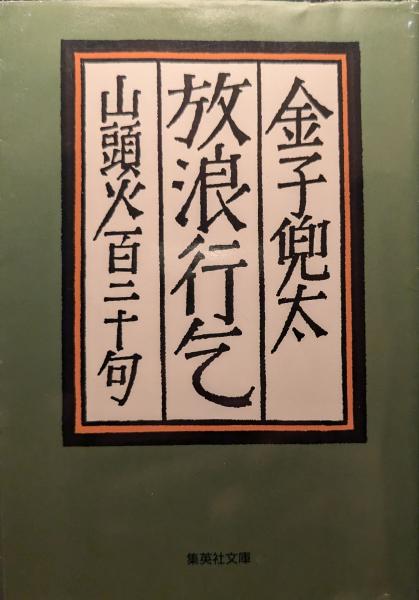 金子兜太
放浪行乞
山頭火百二十句
集英社文庫